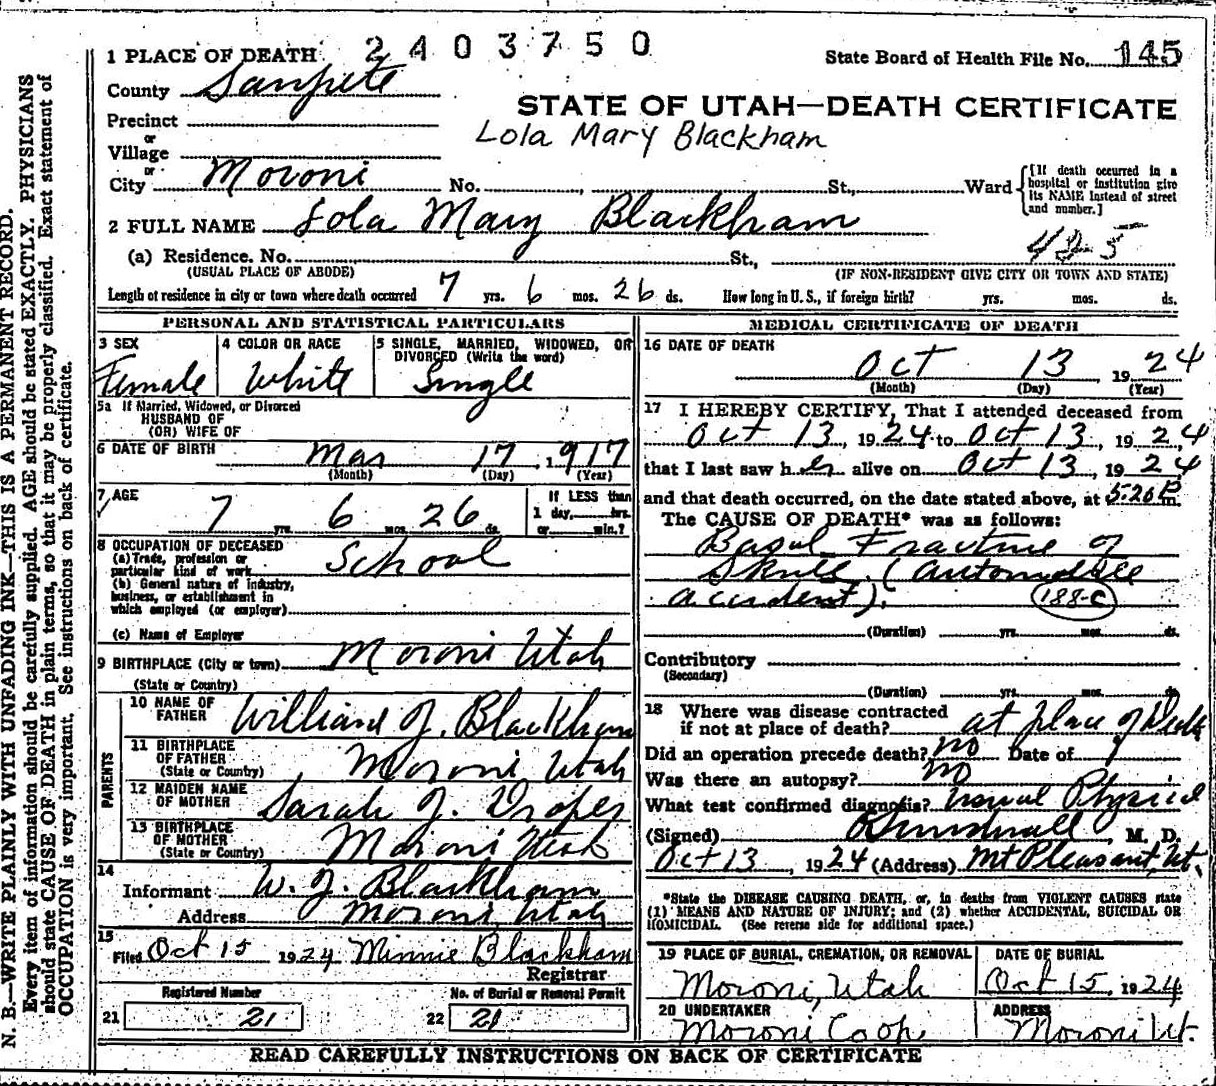 2403750
1 PLACE OF DEATH
State Board of Health File No. 145
County Sanpete
STATE OF UTAH—DEATH CERTIFICATE
Precinct
Lola Mary Blackham
or
Village
or
City Moroni No. , St., Ward
{[If death occurred in a hospital or institution give its NAME instead of street and number.]
2 FULL NAME Lola Mary Blackham
425
(a) Residence. No. St.,
(USUAL PLACE OF ABODE) (IF NON-RESIDENT GIVE CITY OR TOWN AND STATE)
Length of residence in city or town where death occurred 7 yrs. 6 mos. 26 ds. How long in U. S., if foreign birth? yrs. mos. ds.
PERSONAL AND STATISTICAL PARTICULARS
3 SEX
Female
4 COLOR OR RACE
White
5 SINGLE, MARRIED, WIDOWED, OR
DIVORCED (Write the word)
Single
5a If Married, Widowed, or Divorced
HUSBAND OF
(OR) WIFE OF
6 DATE OF BIRTH Mar 17, 1917
(Month) (Day) (Year)
7 AGE
7 yrs. 6 mos. 26 ds.
If LESS than
1 day, hrs.
or min.?
8 OCCUPATION OF DECEASED
(a) Trade, profession or
particular kind of work School
(b) General nature of industry,
business, or establishment in
which employed (or employer)
(c) Name of Employer
9 BIRTHPLACE (City or town) Moroni Utah
(State or Country)
PARENTS
10 NAME OF
FATHER William J. Blackham
11 BIRTHPLACE
OF FATHER
(State or Country) Moroni Utah
12 MAIDEN NAME
OF MOTHER Sarah J.
13 BIRTHPLACE
OF MOTHER
(State or Country) Moroni Utah
14
Informant W. J. Blackham
Address Moroni Utah
15
Filed Oct 15 1924 Minnie Blackham
Registrar
Registered Number
21 21
No. of Burial or Removal Permit
22 21
MEDICAL CERTIFICATE OF DEATH
16 DATE OF DEATH
Oct 13 1924
(Month) (Day) (Year)
17 I HEREBY CERTIFY, That I attended deceased from
Oct 13, 1924 to Oct 13, 1924,
that I last saw her alive on Oct 13, 1924
and that death occurred, on the date stated above, at 5:20 P m.
The CAUSE OF DEATH* was as follows:
Basal Fracture of
Skull. (automobile
accident). 188-C
(Duration) yrs. mos. ds.
Contributory
(Secondary)
(Duration) yrs. mos. ds.
18 Where was disease contracted
if not at place of death? at place of Death
Did an operation precede death? no Date of
Was there an autopsy? no
What test confirmed diagnosis? Physical
(Signed) M. D.
Oct 13, 1924 (Address) Mt Pleasant, Ut.
*State the DISEASE CAUSING DEATH, or, in deaths from VIOLENT CAUSES state
(1) MEANS AND NATURE OF INJURY; and (2) whether ACCIDENTAL, SUICIDAL OR
HOMICIDAL. (See reverse side for additional space.)
19 PLACE OF BURIAL, CREMATION, OR REMOVAL
Moroni, Utah
DATE OF BURIAL
Oct 15, 1924
20 UNDERTAKER
Moroni Coop
ADDRESS
Moroni Ut.
READ CAREFULLY INSTRUCTIONS ON BACK OF CERTIFICATE
N. B.—WRITE PLAINLY WITH UNFADING INK—THIS IS A PERMANENT RECORD.
Every item of information should be carefully supplied. AGE should be stated EXACTLY. PHYSICIANS
should state CAUSE OF DEATH in plain terms, so that it may be properly classified. Exact statement of
OCCUPATION is very important. See instructions on back of certificate.